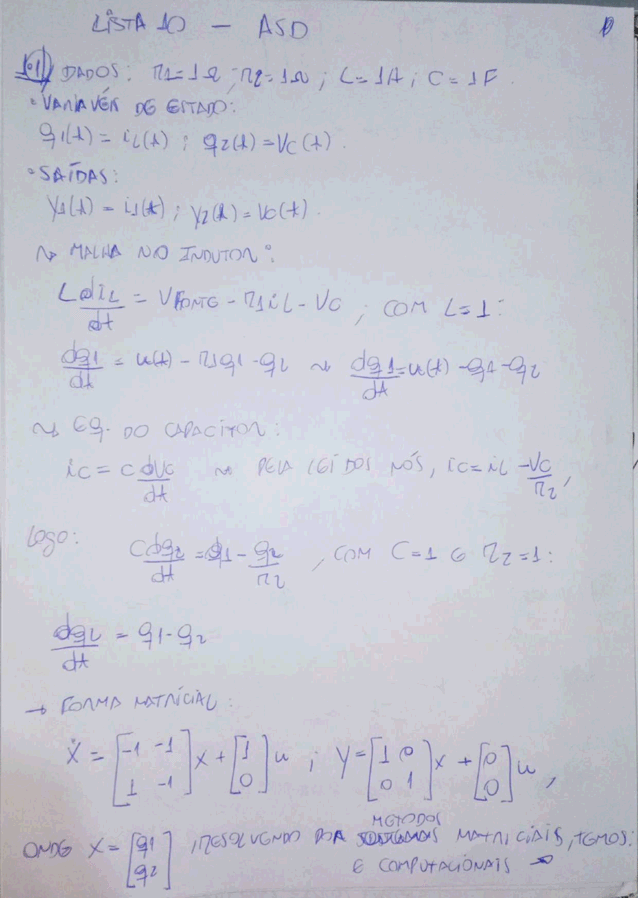 LISTA 10 - ASD
01) DADOS: r1=1Ω; r2=1Ω; L=1A; C=1F.
• VARIAVÉIS DE ESTADO:
q1(t) = iL(t) ; q2(t) = Vc(t).
• SAÍDAS:
y1(t) = i1(t) ; y2(t) = Vo(t).
~> MALHA NO INDUTOR:
L diL/dt = VFONTE - r1 iL - VC ; COM L=1:
dq1/dt = u(t) - r1q1 - q2 ~> dq1/dt = u(t) - q1 - q2
~> EQ. DO CAPACITOR:
ic = C dVc/dt ~> PELA LEI DOS NÓS, ic = iL - Vc/r2,
Logo: C dq2/dt = q1 - q2/r2, COM C=1 E r2=1:
dq2/dt = q1 - q2
→ FORMA MATRICIAL:
Ẋ = [-1 -1; 1 -1] x + [1; 0] u ; Y = [1 0; 0 1] x + [0; 0] u,
ONDE X = [q1; q2] , RESOLVENDO POR MÉTODOS MATRICIAIS, TEMOS:
E COMPUTACIONAIS